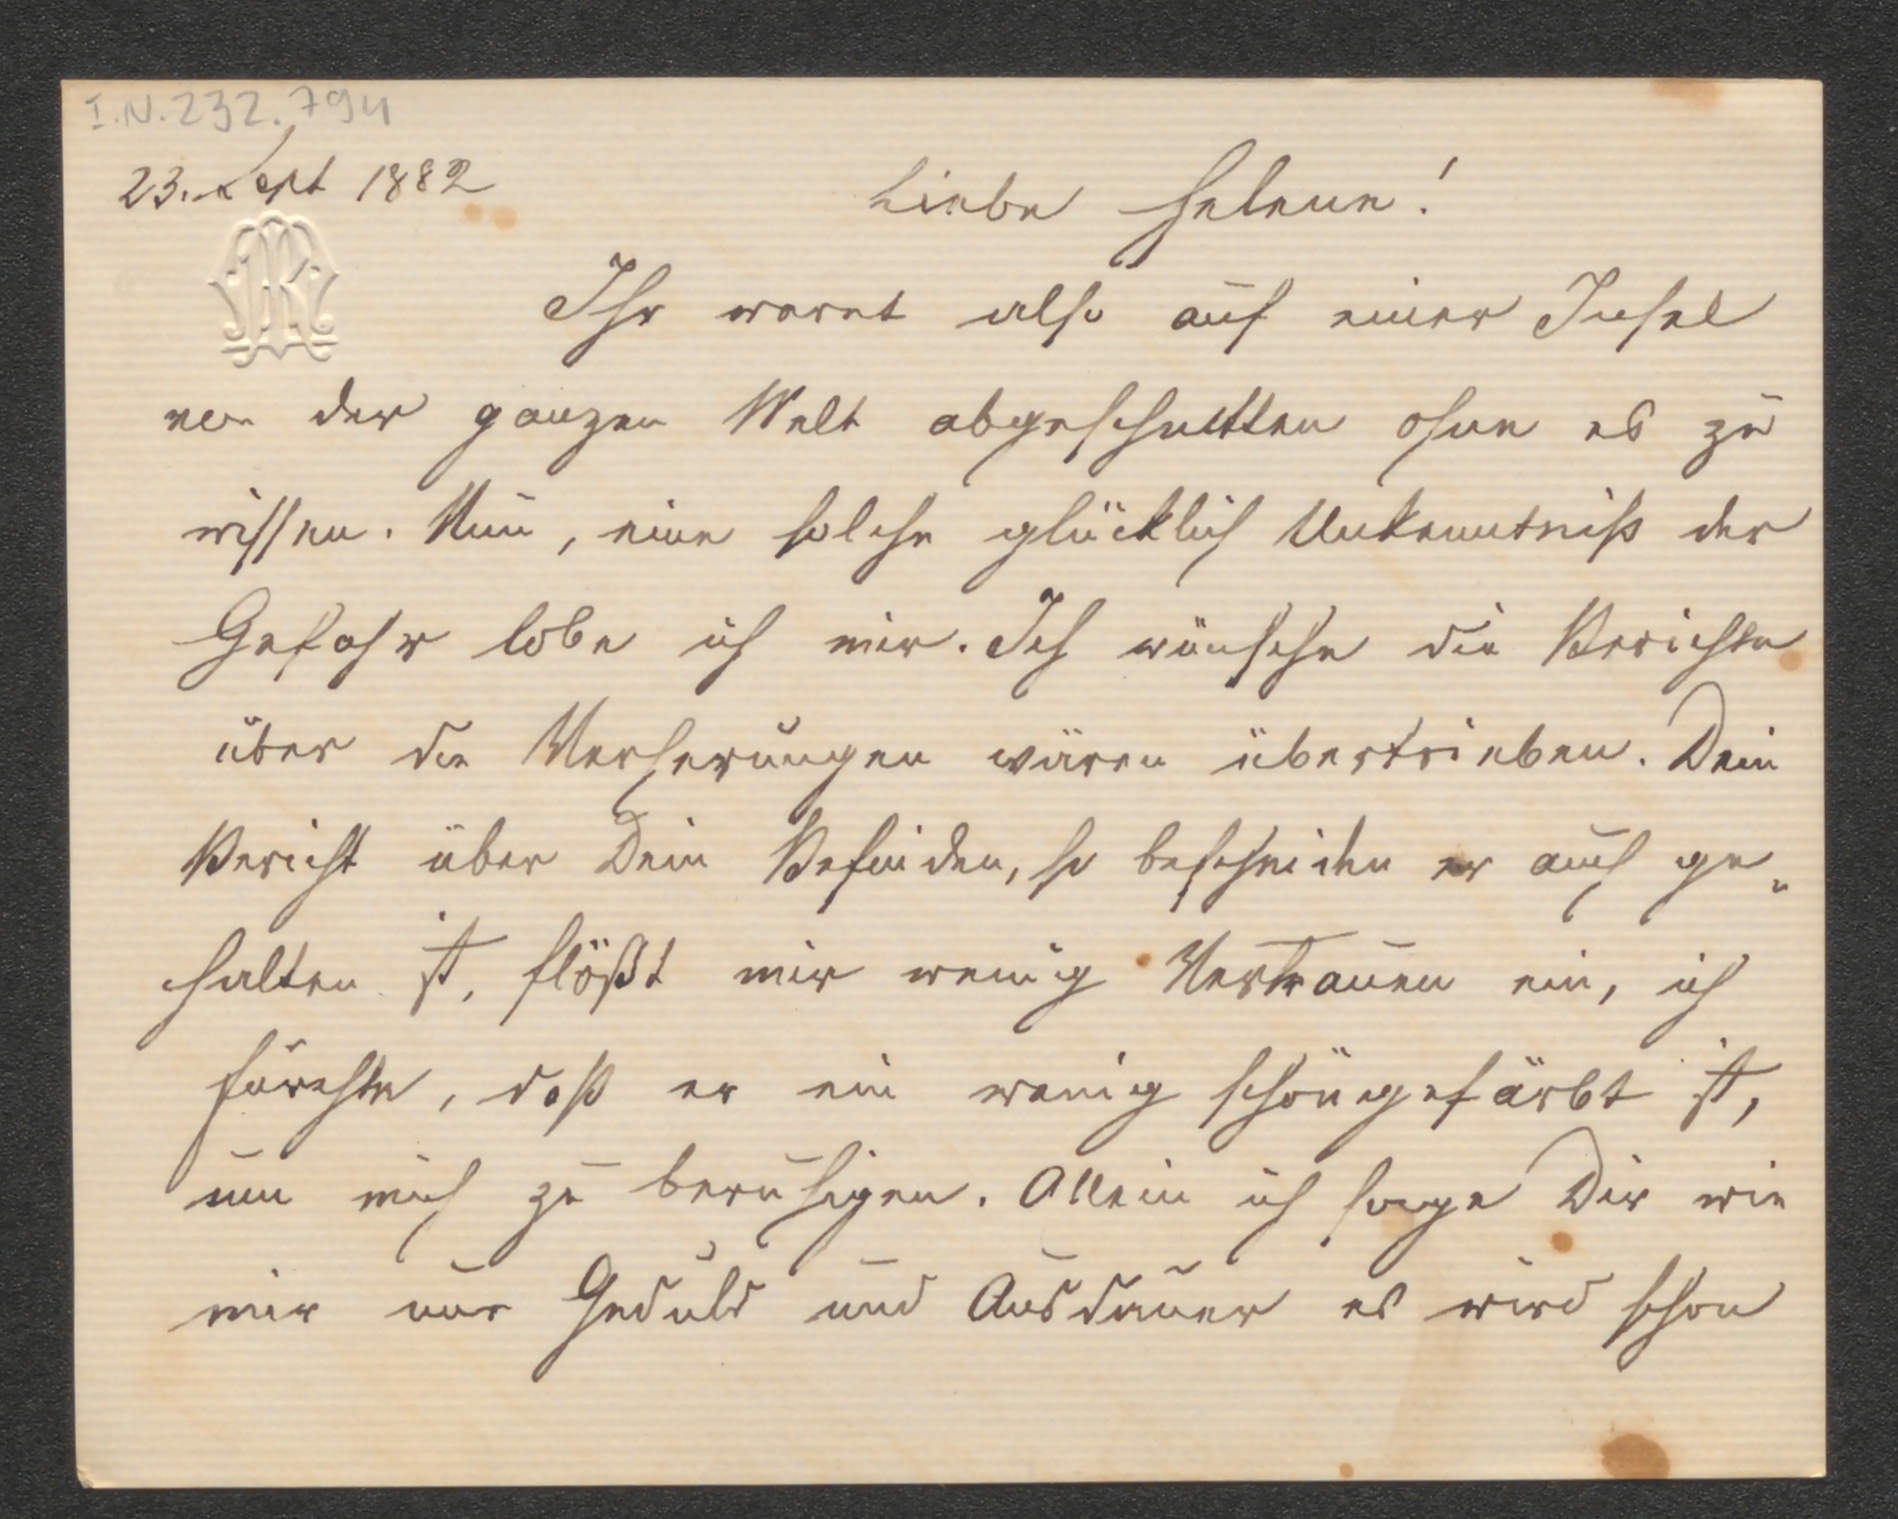 I.N. 232.794
23. Sept 1882
Liebe Helene!
Ihr waret also auf einer Insel
von der ganzen Welt abgeschnitten ohne es zu
wissen. Nun, eine solche glücklich Unkenntniß der
Gefahr lobe ich mir. Ich wünsche die Berichte
über die Verherungen wären übertrieben. Dein
Bericht über Dein Befinden, so bescheiden er auch ge„
halten ist, flößt mir wenig Vertrauen ein, ich
fürchte, daß er ein wenig schöngefärbt ist,
um mich zu beruhigen. Allein ich sage Dir wie
mir nur Geduld und Ausdauer es wird schon